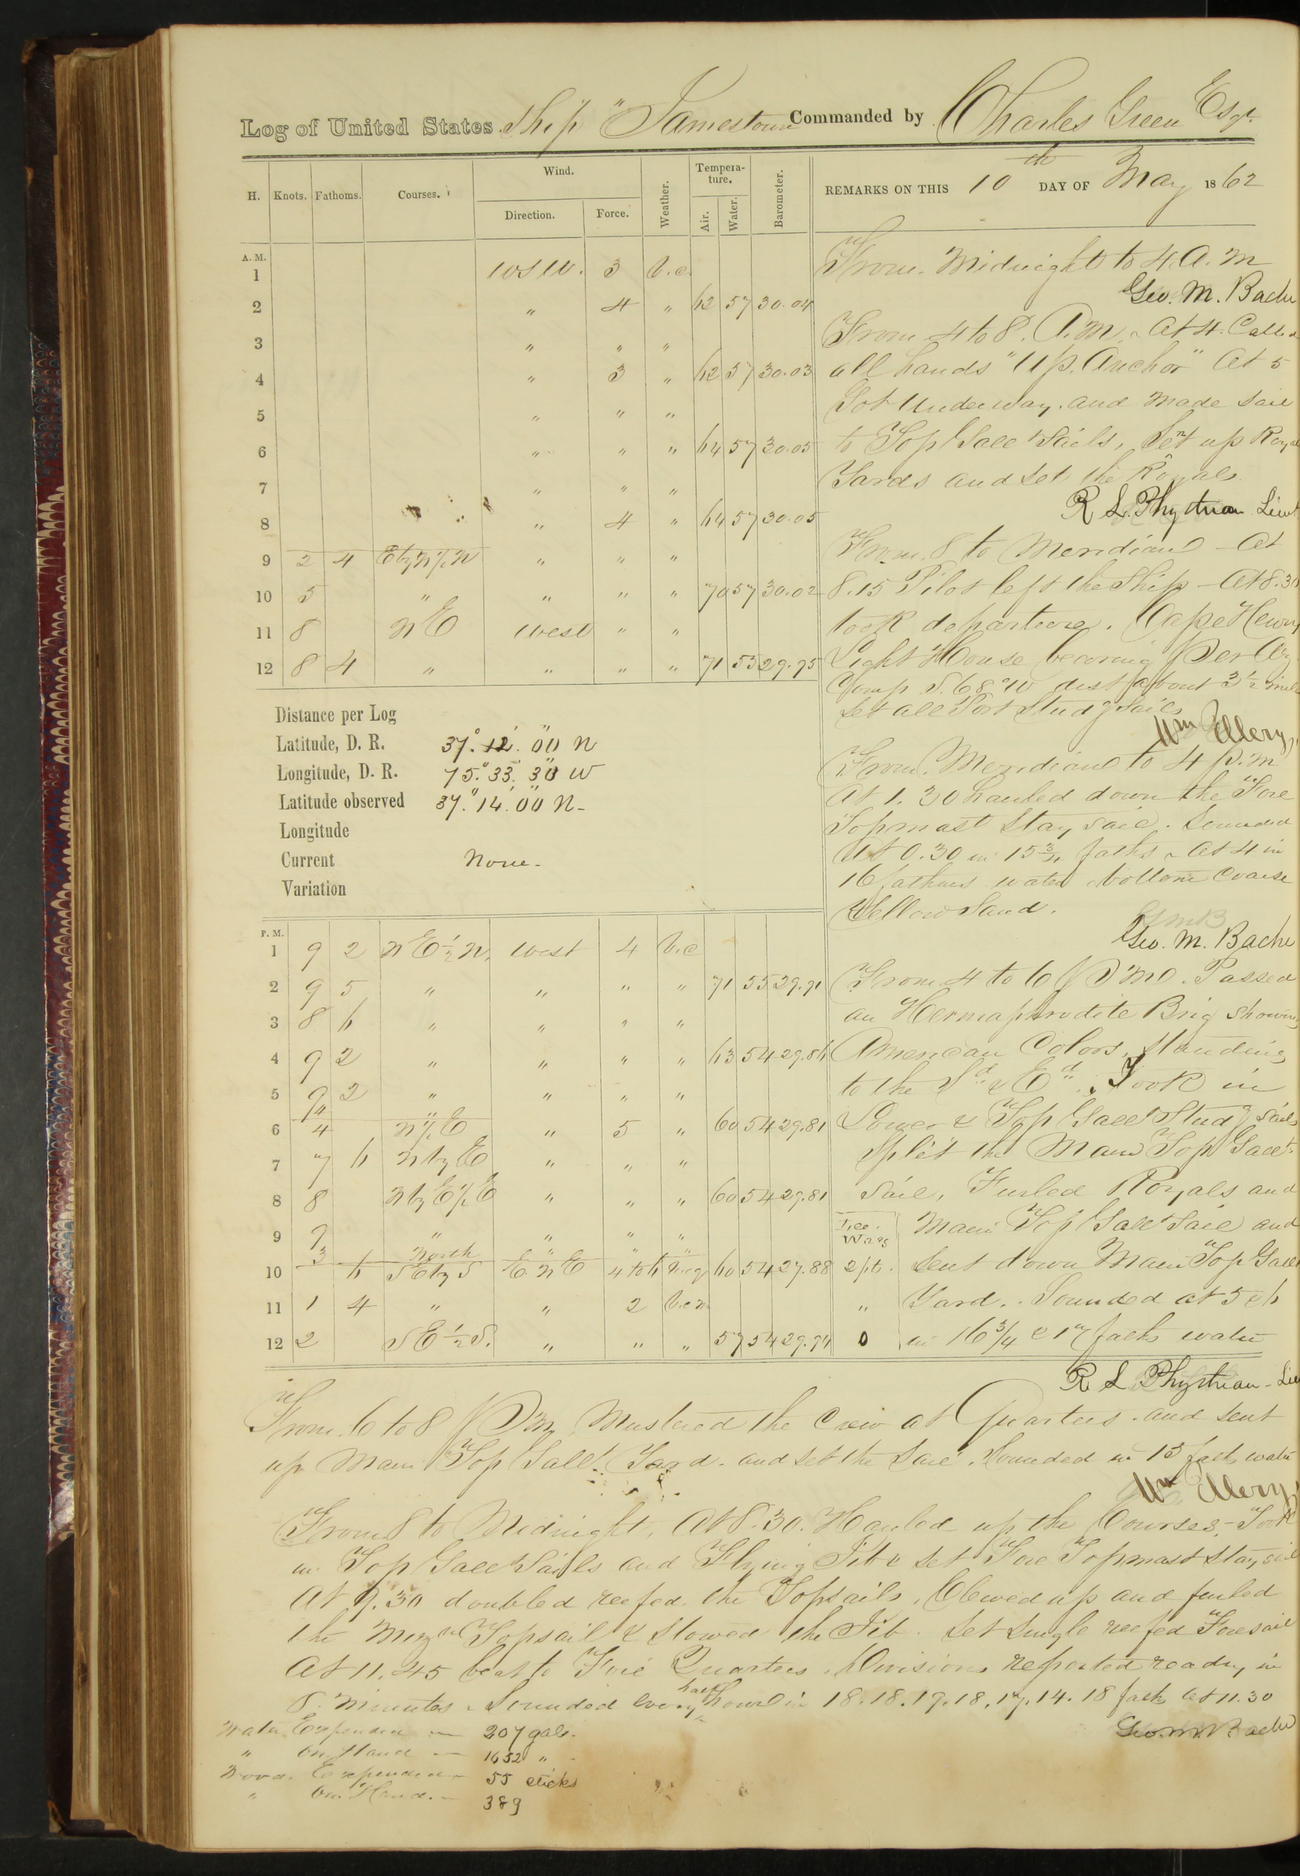 Log of United States Ship "Jamestown Commanded by Charles Green Esqr.
H. Knots. Fathoms. Courses. Wind. Direction. Force. Weather. Tempera-ture. Air. Water. Barometer. REMARKS ON THIS 10th DAY OF May 1862
A. M.
1 WSW. 3 b.c.
2 " 4 " 62 57 30.04
3 " " "
4 " 3 " 62 57 30.03
5 " " "
6 " " " 64 57 30.05
7 " " "
8 " 4 " 64 57 30.05
9 2 4 " " "
10 5 " " " " 70 57 30.02
11 8 NE West " "
12 8 4 " " " " 71 55 29.95
From Midnight to 4 A.M
Geo. M. Bache
From 4 to 8. A.M. At 4. Called
all hands "Up Anchor" At 5
Got Underway. and made sail
to Top Gallt Sails, Sent up Royal
Yards and set the Royals
R L Phythian Lieut
From 8 to Meridian - At
8.15 Pilot left the Ship - At 8.30
took departure. Cape Henry
Light House bearing Per Az.
Comp S.68°W dist about 3 1/2 miles
Set all Port Studg Sails
Wm Ellery,
Distance per Log
Latitude, D. R. 37°.12'.00" N
Longitude, D. R. 75°.33'.30" W
Latitude observed 37°.14'.00" N-
Longitude
Current None-
Variation
From Meridian to 4 p.m
At 1.30 hauled down the Fore
Topmast Stay sail. Sounded
at 0.30 in 15 3/4 faths. At 4 in
16 fathms water bottom coarse
Yellow Sand.
Geo. M. Bache
P. M.
1 9 2 NE 1/2 N. West 4 b.c
2 9 5 " " " " 71 55 29.91
3 8 6 " " " "
4 9 2 " " " " 63 54 29.86
5 9 2 " " " "
6 4 " 5 " 60 54 29.81
7 7 6 N by E " " "
8 8 " " " 60 54 29.81
9 9 " " " "
10 3 6 North SE by S E NE 4 to 6 60 54 29.88 2 pt.
11 1 4 " " 2 "
12 2 SE 1/2 S. " " " 57 54 29.94 0
Lee Way
From 4 to 6 P M. Passed
an Hermaphrodite Brig showing
American Colors, standing
to the Sd & Ed. Took in
Lower & Top Gallt Studg Sails
Split the Main Top Gallt
Sail, Furled Royals and
Main Top Gallt Sail and
sent down Main Top Gallt
Yard. Sounded at 5 & 6
in 16 3/4 & 17 faths water
R L Phythian - Lieu
From 6 to 8 P M Mustered the Crew at Quarters. and sent
up Main Top Gallt Yard. and set the Sail. Sounded in 13 faths water
Wm Ellery,
From 8 to Midnight. At 8.30. Hauled up the Courses,- Took
in Top Gallt Sails and Flying Jib & set Fore Topmast Stay sail
At 9.30 doubled reefed the Topsails, Clewed up and furled
the Mizn Topsail & Stowed the Jib. Set single reefed Foresail
At 11.45 beat to Fire Quarters. Divisions reported ready in
8. minutes. Sounded every half hour in 18.18.19.18.17.14.18 faths at 11.30
Geo. M. Bache
Water Expended - 207 gals.
" on Hand - 1652 "
Wood Expended - 55 sticks
" on Hand. - 389